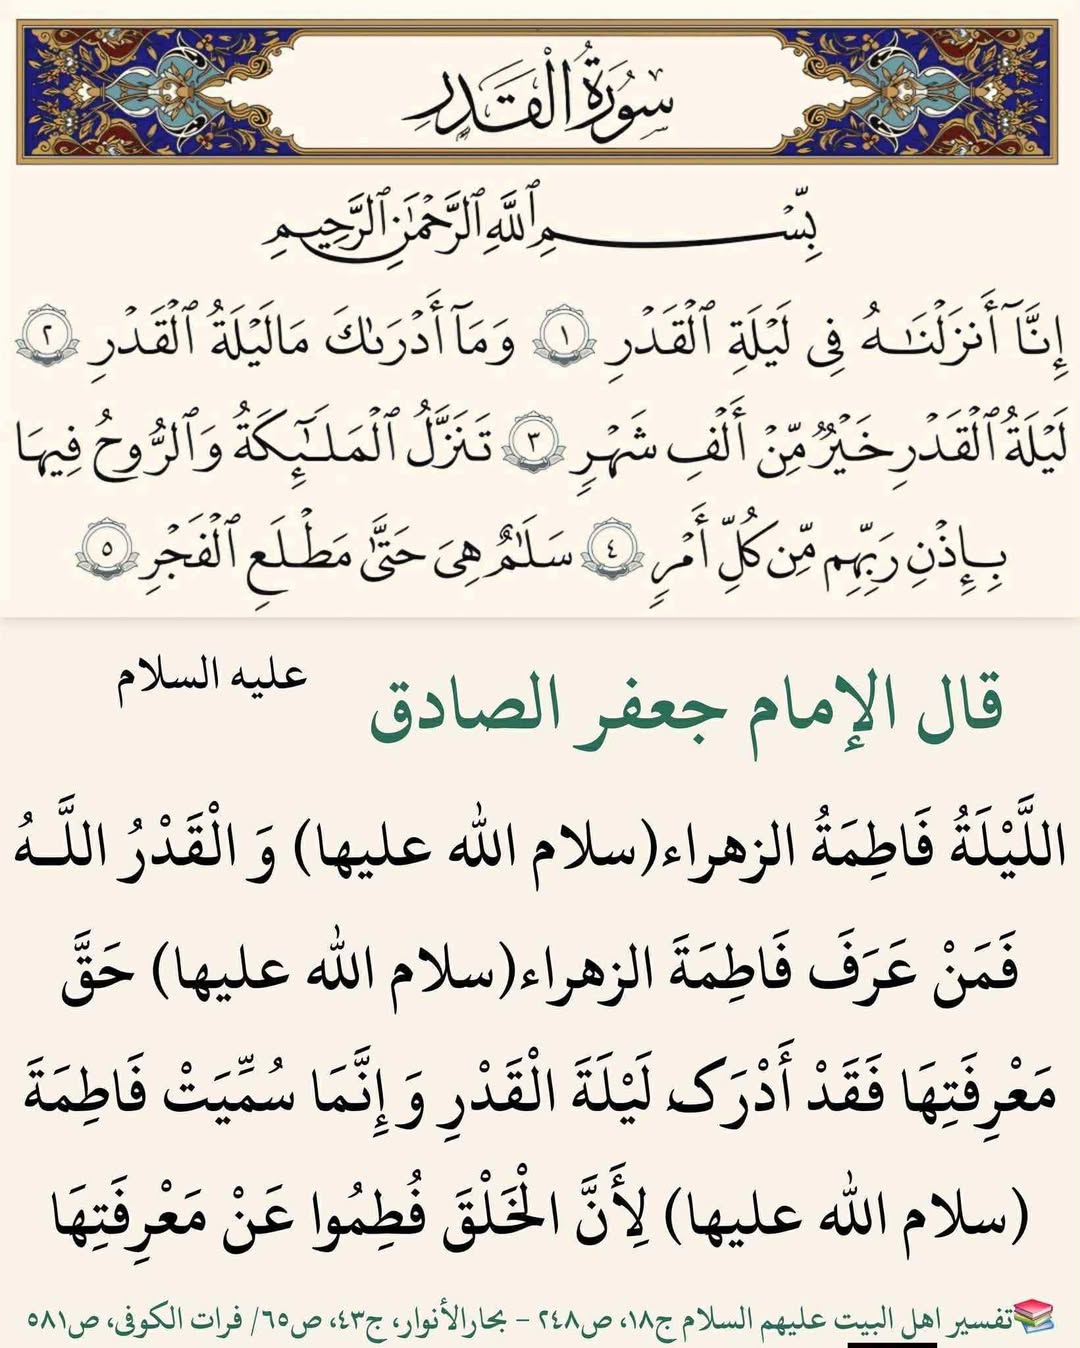 سُورَةُ الْقَدْرِ
بِسْمِ ٱللَّهِ ٱلرَّحْمَٰنِ ٱلرَّحِيمِ
إِنَّآ أَنزَلْنَـٰهُ فِى لَيْلَةِ ٱلْقَدْرِ ١ وَمَآ أَدْرَىٰكَ مَا لَيْلَةُ ٱلْقَدْرِ ٢
لَيْلَةُ ٱلْقَدْرِ خَيْرٌ مِّنْ أَلْفِ شَهْرٍ ٣ تَنَزَّلُ ٱلْمَلَـٰٓئِكَةُ وَٱلرُّوحُ فِيهَا
بِإِذْنِ رَبِّهِم مِّن كُلِّ أَمْرٍ ٤ سَلَـٰمٌ هِىَ حَتَّىٰ مَطْلَعِ ٱلْفَجْرِ ٥
قال الإمام جعفر الصادق عليه السلام
اللَّيْلَةُ فَاطِمَةُ الزهراء(سلام الله عليها) وَ الْقَدْرُ اللَّـهُ
فَمَنْ عَرَفَ فَاطِمَةَ الزهراء(سلام الله عليها) حَقَّ
مَعْرِفَتِهَا فَقَدْ أَدْرَکَ لَيْلَةَ الْقَدْرِ وَ إِنَّمَا سُمِّيَتْ فَاطِمَةَ
(سلام الله عليها) لِأَنَّ الْخَلْقَ فُطِمُوا عَنْ مَعْرِفَتِهَا
📚تفسير اهل البيت عليهم السلام ج١٨، ص٢٤٨ - بحارالأنوار، ج٤٣، ص٦٥/ فرات الکوفی، ص٥٨١